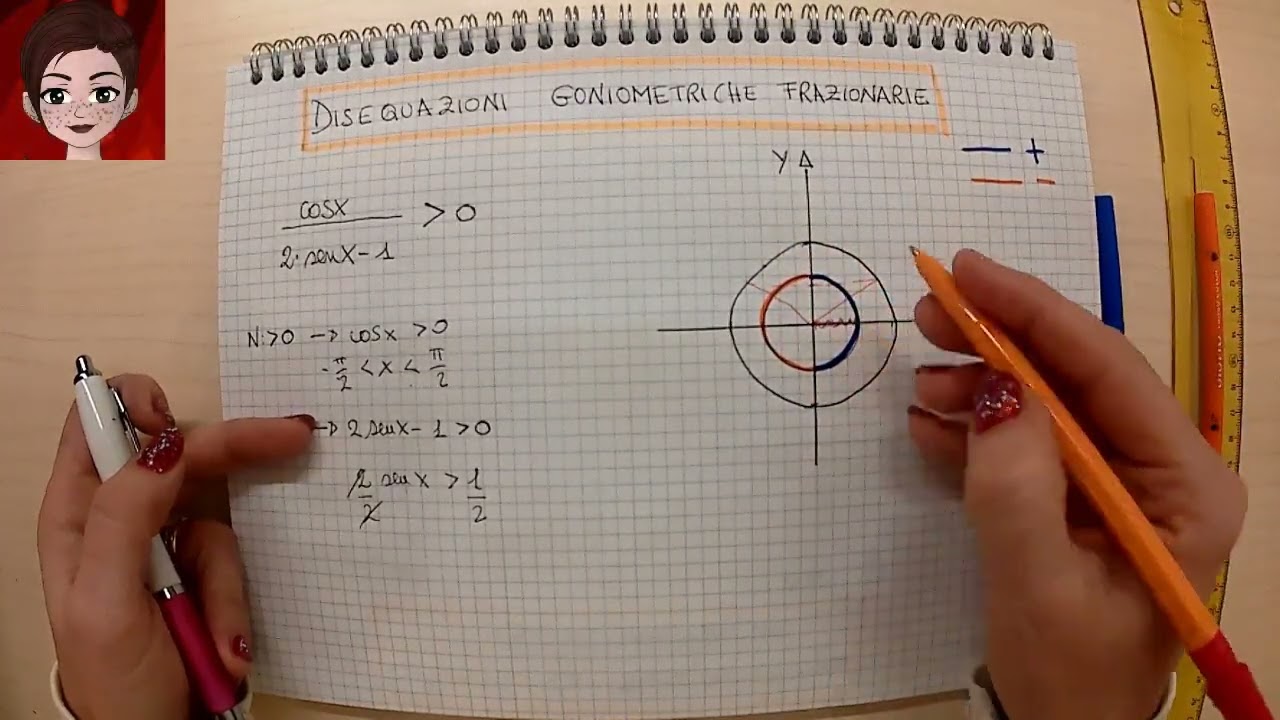 DISEQUAZIONI GONIOMETRICHE FRAZIONARIE
Y
+
-
cosx
> 0
2·senx-1
N:>0 → cosx >0
-π/2 < x < π/2
→ 2senx-1>0
2/2 senx > 1/2